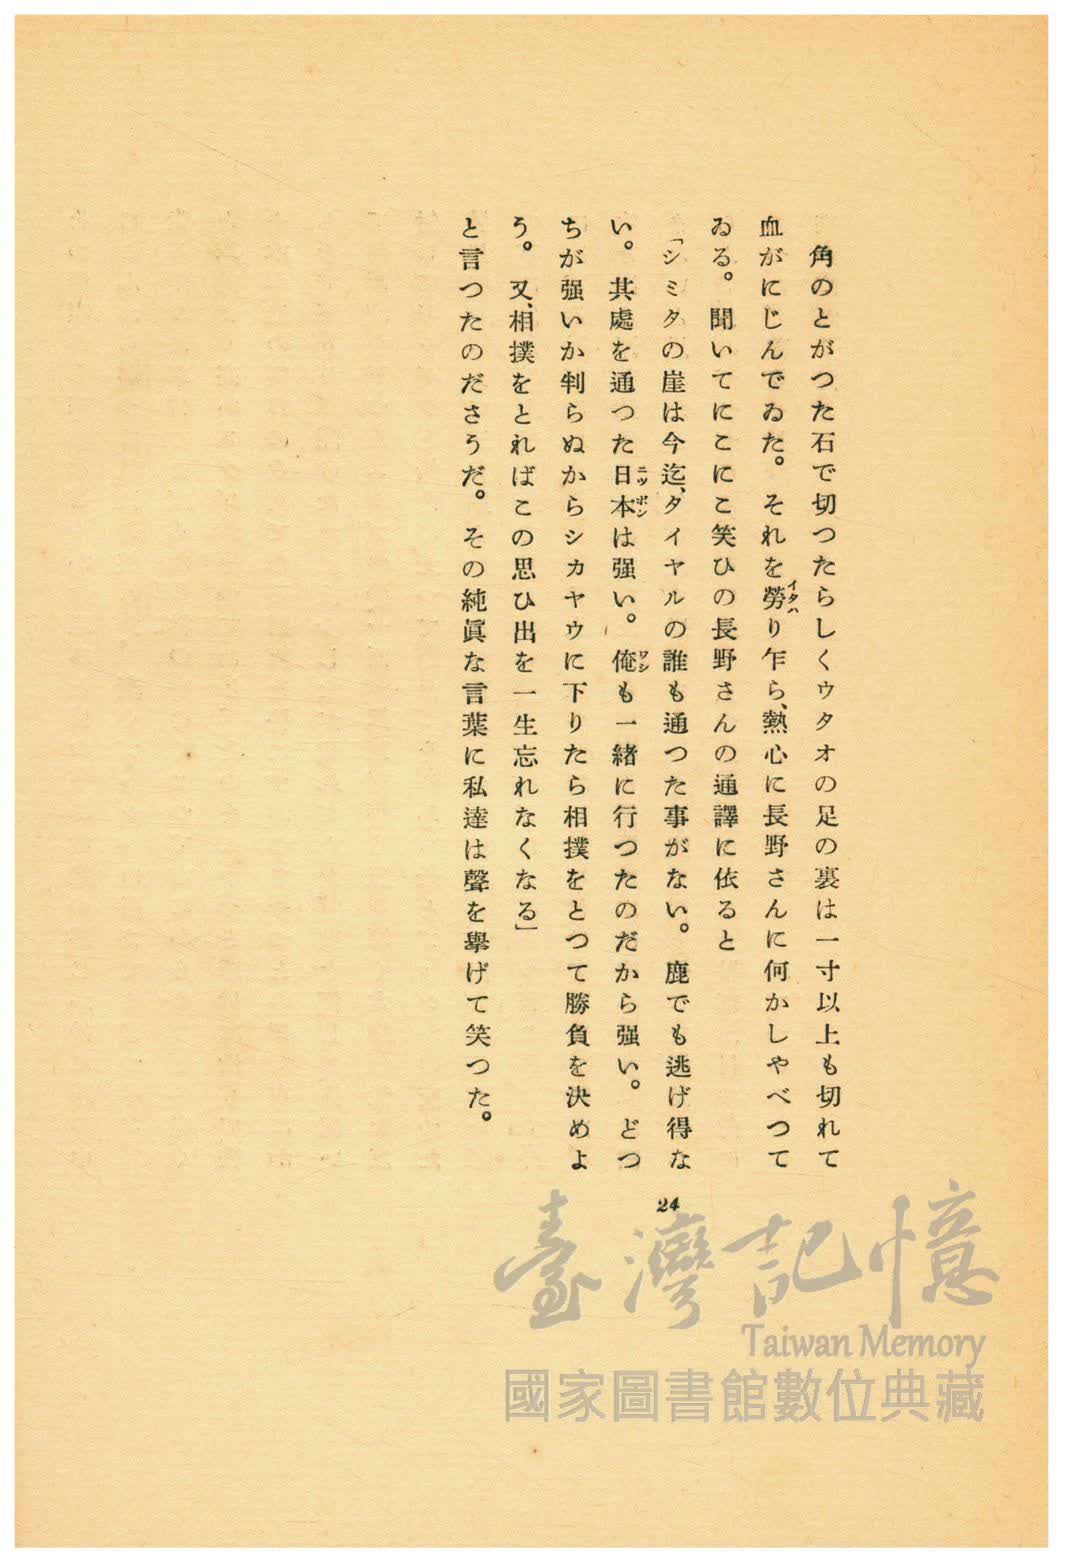 角のとがつた石で切つたらしくウタオの足の裏は一寸以上も切れて
血がにじんでゐた。それを勞り乍ら、熱心に長野さんに何かしやべつて
イタハ
ゐる。聞いてにこにこ笑ひの長野さんの通譯に依ると
「シミタの崖は今迄、タイヤルの誰も通つた事がない。鹿でも逃げ得な
い。其處を通つた日本は强い。俺も一緒に行つたのだから强い。どつ
ニツポン
ワシ
ちが强いか判らぬからシカヤウに下りたら相撲をとつて勝負を決めよ
う。又、相撲をとればこの思ひ出を一生忘れなくなる」
と言つたのださうだ。その純眞な言葉に私達は聲を擧げて笑つた。
24
臺灣記憶
Taiwan Memory
國家圖書館數位典藏